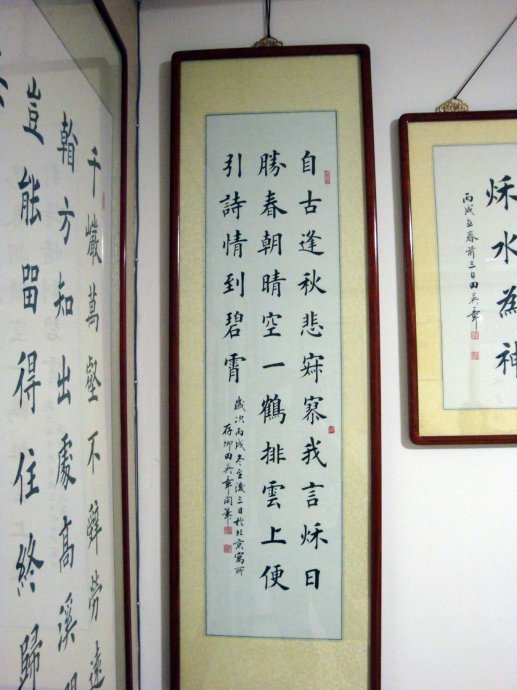 秋水為神
丙戌立春前三日田英章
自古逢秋悲寂寥我言秋日
勝春朝晴空一鶴排雲上便
引詩情到碧霄
歲次丙戌冬至後三日於北京寓所
存卿田英章閑筆
千巖萬壑不辭勞遠
看方知出處高溪澗
豈能留得住終歸